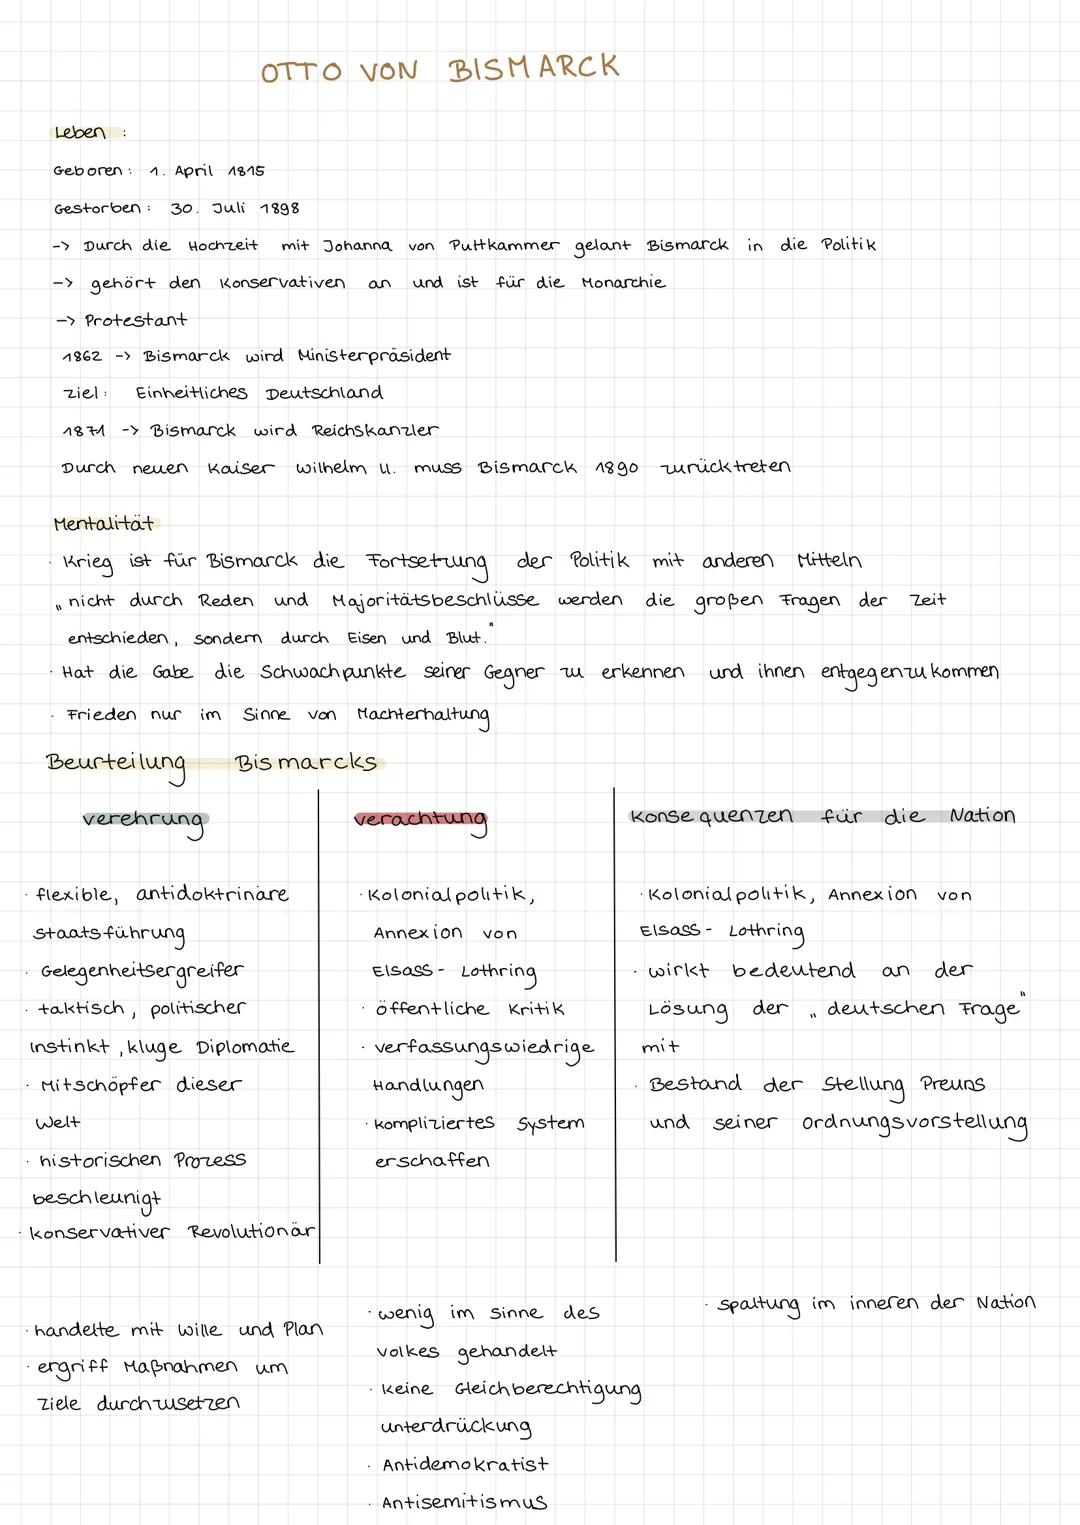 OTTO VON BISMARCK
Leben :
Geboren : 1. April 1815
Gestorben : 30. Juli 1898
-> Durch die Hochzeit mit Johanna von Puttkammer gelant Bismarck in die Politik
-> gehört den Konservativen an und ist für die Monarchie
-> Protestant
1862 -> Bismarck wird Ministerpräsident
Ziel : Einheitliches Deutschland
1871 -> Bismarck wird Reichskanzler
Durch neuen Kaiser Wilhelm II. muss Bismarck 1890 zurücktreten
Mentalität
· Krieg ist für Bismarck die Fortsetzung der Politik mit anderen Mitteln
„nicht durch Reden und Majoritätsbeschlüsse werden die großen Fragen der Zeit
entschieden, sondern durch Eisen und Blut."
· Hat die Gabe die Schwachpunkte seiner Gegner zu erkennen und ihnen entgegenzukommen
· Frieden nur im Sinne von Machterhaltung
Beurteilung Bismarcks
verehrung
· flexible, antidoktrinäre
staatsführung
· Gelegenheitsergreifer
· taktisch, politischer
instinkt, kluge Diplomatie
· Mitschöpfer dieser
Welt
· historischen Prozess
beschleunigt
· konservativer Revolutionär
· handelte mit Wille und Plan
· ergriff Maßnahmen um
Ziele durchzusetzen
verachtung
· Kolonialpolitik,
Annexion von
Elsass- Lothring
· öffentliche Kritik
· verfassungswiedrige
Handlungen
· kompliziertes System
erschaffen
· wenig im Sinne des
Volkes gehandelt
· keine Gleichberechtigung
unterdrückung
· Antidemokratist
· Antisemitismus
Konsequenzen für die Nation
· Kolonialpolitik, Annexion von
Elsass- Lothring
· wirkt bedeutend an der
Lösung der „deutschen Frage"
mit
· Bestand der Stellung Preuns
und seiner ordnungsvorstellung
· spaltung im inneren der Nation